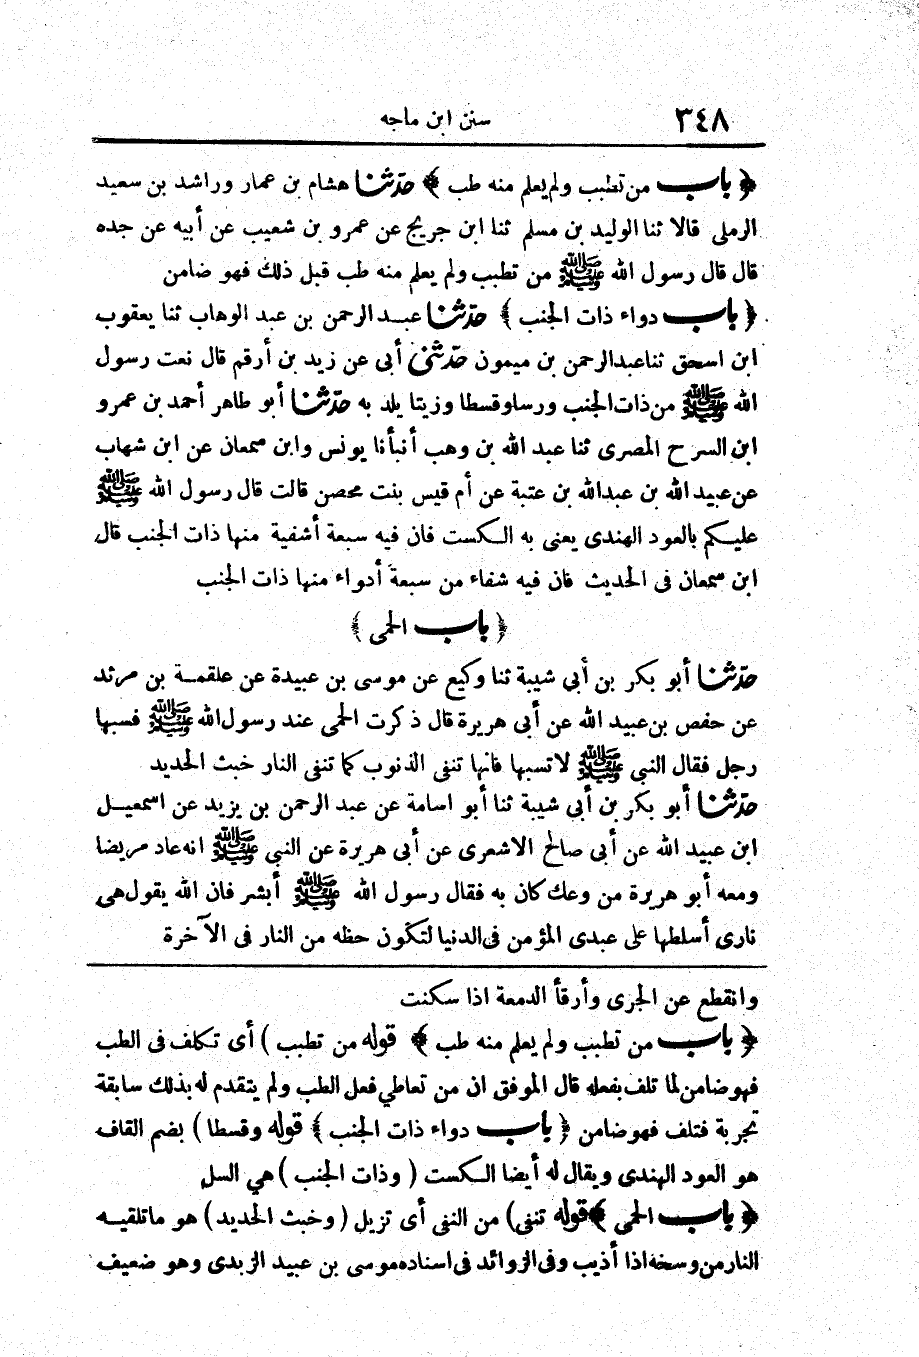 ٣٤٨
سنن ابن ماجه
﴿ باب من تطبب ولم يعلم منه طب ﴾ حدّثنا هشام بن عمار وراشد بن سعيد
الرملى قالا ثنا الوليد بن مسلم ثنا ابن جريج عن عمرو بن شعيب عن أبيه عن جده
قال قال رسول الله ﷺ من تطبب ولم يعلم منه طب قبل ذلك فهو ضامن
﴿ باب دواء ذات الجنب ﴾ حدّثنا عبد الرحمن بن عبد الوهاب ثنا يعقوب
ابن اسحق ثنا عبد الرحمن بن ميمون حدّثنى أبى عن زيد بن أرقم قال نعت رسول
الله ﷺ من ذات الجنب ورسا وقسطا وزيتا يلد به حدّثنا أبو طاهر أحمد بن عمرو
ابن السرح المصرى ثنا عبد الله بن وهب أنبأنا يونس وابن سمعان عن ابن شهاب
عن عبيد الله بن عبد الله بن عتبة عن أم قيس بنت محصن قالت قال رسول الله ﷺ
عليكم بالعود الهندى يعنى به الكست فان فيه سبعة أشفية منها ذات الجنب قال
ابن سمعان فى الحديث فان فيه شفاء من سبعة أدواء منها ذات الجنب
﴿ باب الحمى ﴾
حدّثنا أبو بكر بن أبى شيبة ثنا وكيع عن موسى بن عبيدة عن علقمة بن مرثد
عن حفص بن عبيد الله عن أبى هريرة قال ذكرت الحمى عند رسول الله ﷺ فسبها
رجل فقال النبى ﷺ لا تسبها فانها تنفى الذنوب كما تنفى النار خبث الحديد
حدّثنا أبو بكر بن أبى شيبة ثنا أبو اسامة عن عبد الرحمن بن يزيد عن اسمعيل
ابن عبيد الله عن أبى صالح الاشعرى عن أبى هريرة عن النبى ﷺ انه عاد مريضا
ومعه أبو هريرة من وعك كان به فقال رسول الله ﷺ أبشر فان الله يقول هى
نارى أسلطها على عبدى المؤمن فى الدنيا لتكون حظه من النار فى الآخرة
وانقطع عن الجرى وأرقأ الدمعة اذا سكنت
﴿ باب من تطبب ولم يعلم منه طب ﴾ قوله من تطبب ) أى تكلف فى الطب
فهو ضامن لما تلف بفعله قال الموفق ان من تعاطي فعل الطب ولم يتقدم له بذلك سابقة
تجربة فتلف فهو ضامن ﴿ باب دواء ذات الجنب ﴾ قوله وقسطا ) بضم القاف
هو العود الهندى ويقال له أيضا الكست ( وذات الجنب ) هي السل
﴿ باب الحمى ﴾ قوله تنفى) من النفى أى تزيل ( وخبث الحديد ) هو ما تلقيه
النار من وسخه اذا أذيب وفى الزوائد فى اسناده موسى بن عبيد الزبدى وهو ضعيف